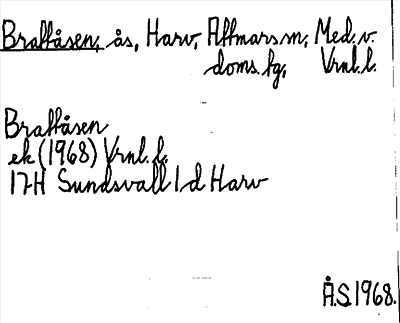 Brattåsen, ås, Harv, Attmars sn, Med. v.
doms. tg, Vrnl. l.
Brattåsen
ek (1968) Vrnl. l.
17H Sundsvall 1d Harv
Å.S 1968.